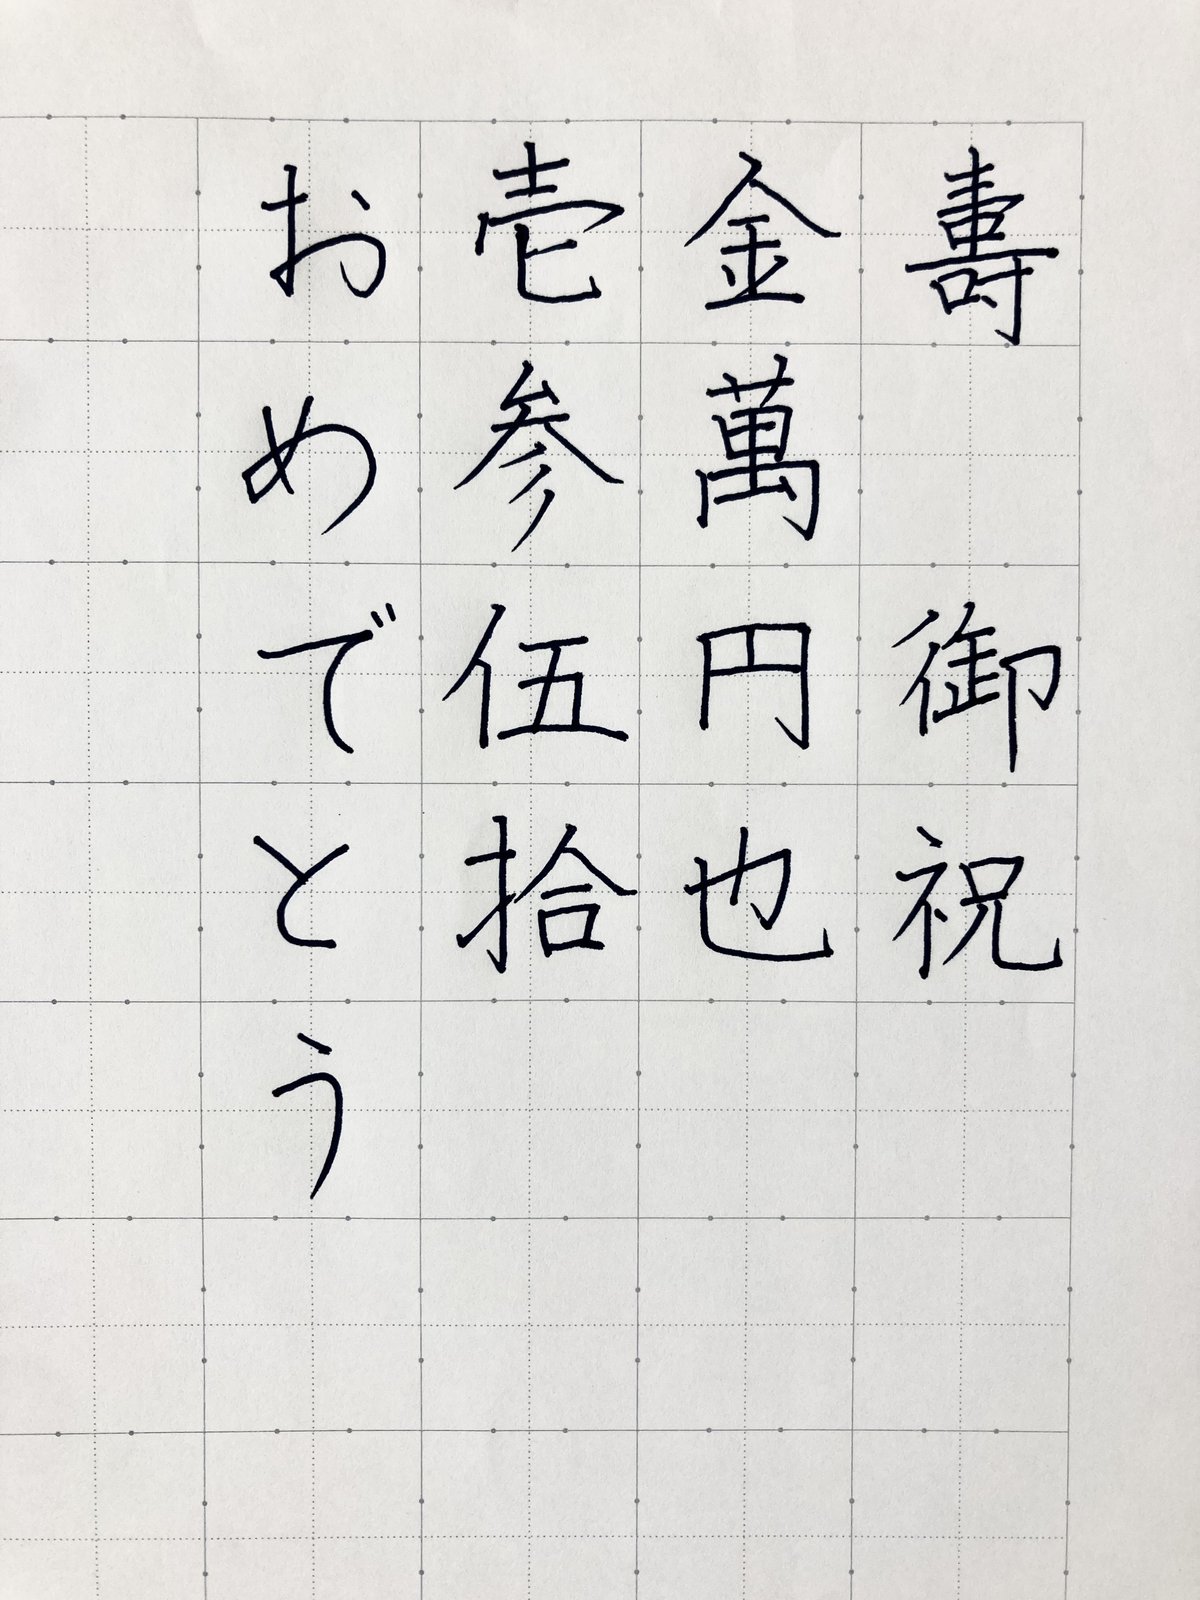 壽　御祝
金萬円也
壱参伍拾
おめでとう